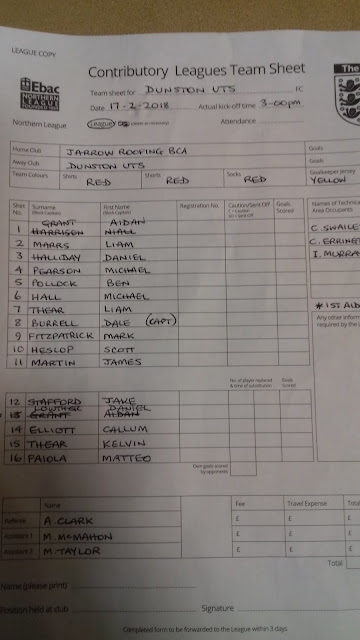 LEAGUE COPY
Contributory Leagues Team Sheet
The
Ebac
NORTHERN LEAGUE
Team sheet for DUNSTON UTS FC
Date 17-2-2018 Actual kick off time 3-00pm
Northern League League Attendance
Home Club JARROW ROOFING BCA Goals
Away Club DUNSTON UTS Goals
Team Colours Shirts RED Shorts RED Socks RED Goalkeeper Jersey YELLOW
Shirt No. Surname (Block Capitals) First Name (Block Capitals) Registration No. Caution/Sent Off Goals Scored Names of Technical Area Occupants
GRANT AIDAN
1 HARRISON NIALL C. SWAILE
2 MARRS LIAM C. ERRINGT
3 HALLIDAY DANIEL I. MURRA
4 PEARSON MICHAEL
5 POLLOCK BEN
6 HALL MICHAEL
7 THEAR LIAM *1ST AID
8 BURRELL DALE (CAPT) Any other inform
9 FITZPATRICK MARK required by the
10 HESLOP SCOTT
11 MARTIN JAMES
No. of player replaced & time of substitution Goals Scored
12 STAFFORD JAKE
LOWTHER DANIEL
13 GRANT AIDAN
14 ELLIOTT CALLUM
15 THEAR KELVIN
16 PAIOLA MATTEO
Own goals scored by opponents
Name Fee Travel Expense Total
Referee A. CLARK £ £ £
Assistant 1 M. McMAHON £ £ £
Assistant 2 M. TAYLOR £ £ £
Total
Name (please print)
Position held at club Signature
Completed form to be forwarded to the League within 3 days